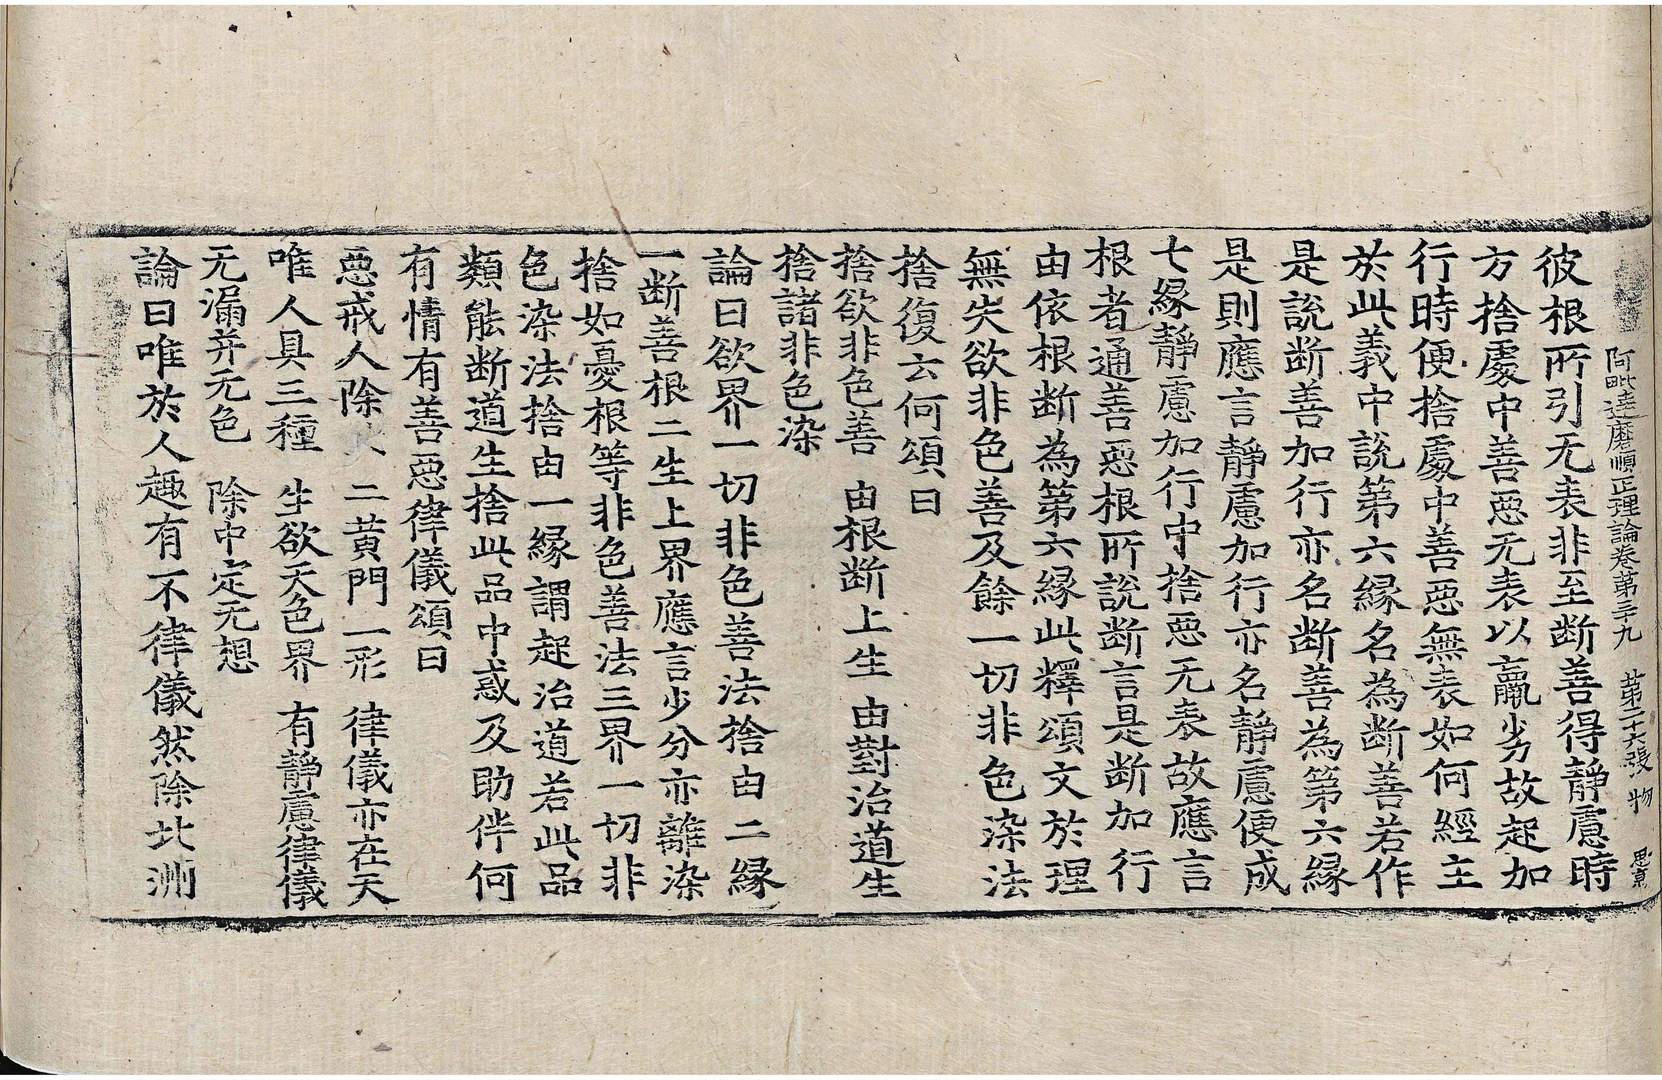 阿毗達磨順正理論卷第三十九　第二十六張　物　思京
彼根所引无表非至断善得靜慮時
方捨處中善惡无表以羸劣故起加
行時便捨處中善惡無表如何經主
於此義中說第六縁名為断善若作
是說断善加行亦名断善為第六縁
是則應言靜慮加行亦名靜慮便成
七縁靜慮加行中捨惡无表故應言
根者通善惡根所說断言是断加行
由依根断為第六縁此釋頌文於理
無失欲非色善及餘一切非色染法
捨復云何頌曰
捨欲非色善　由根断上生　由對治道生
捨諸非色染
論曰欲界一切非色善法捨由二縁
一断善根二生上界應言少分亦離染
捨如憂根等非色善法三界一切非
色染法捨由一縁謂起治道若此品
類能断道生捨此品中惑及助伴何
有情有善惡律儀頌曰
惡戒人除　二黃門二形　律儀亦在天
唯人具三種　生欲天色界　有靜慮律儀
无漏并无色　除中定无想
論曰唯於人趣有不律儀然除北洲